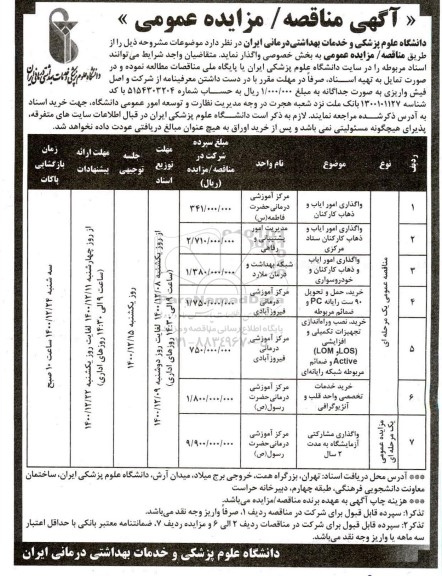 « آگهی مناقصه / مزایده عمومی »
دانشگاه علوم پزشکی و خدمات بهداشتی درمانی ایران در نظر دارد موضوعات مشروحه ذیل را از
طریق مناقصه / مزایده عمومی به بخش خصوصی واگذار نماید. متقاضیان واجد شرایط می‌توانند
اسناد مربوطه را در سایت دانشگاه علوم پزشکی ایران یا پایگاه ملی مناقصات مطالعه نموده و در
صورت تمایل به تهیه اسناد، صرفاً در مهلت مقرر با در دست داشتن معرفینامه از شرکت و اصل
فیش واریزی به صورت جداگانه به مبلغ ۱/۰۰۰/۰۰۰ ریال به حساب شماره ۵۱۵۴۳۰۳۲۰۴ با کد
شناسه ۱۳۰۰۱۰۱۱۲۷ بانک ملت نزد شعبه هجرت در وجه مدیریت نظارت و توسعه امور عمومی دانشگاه، جهت خرید اسناد
به آدرس ذکرشده مراجعه نمایند. لازم به ذکر است دانشگاه علوم پزشکی ایران در قبال اطلاعات سایت های متفرقه،
پذیرای هیچگونه مسئولیتی نمی باشد و پس از خرید اوراق به هیچ عنوان مبالغ دریافتی عودت داده نخواهد شد.
ردیف نوع موضوع نام واحد مبلغ سپرده شرکت در مناقصه/مزایده (ریال) مهلت توزیع اسناد جلسه توجیهی مهلت ارائه پیشنهادات زمان بازگشایی پاکات
مناقصه عمومی یک مرحله ای
۱ واگذاری امور ایاب و ذهاب کارکنان مرکز آموزشی درمانی حضرت فاطمه(س) ۳۴۱/۰۰۰/۰۰۰
۲ واگذاری امور ایاب و ذهاب کارکنان ستاد مرکزی مدیریت امور پشتیبانی و رفاهی ۲/۷۱۰/۰۰۰/۰۰۰
۳ واگذاری امور ایاب و ذهاب کارکنان و خودروسواری شبکه بهداشت و درمان ملارد ۱/۳۸۰/۰۰۰/۰۰۰
۴ خرید، حمل و تحویل ۹۰ ست رایانه PC و ضمائم مربوطه مرکز آموزشی درمانی فیروزآبادی ۱/۷۵۰/۰۰۰/۰۰۰
۵ خرید، نصب و راه‌اندازی تجهیزات تکمیلی و افزایشی (LOM و LOS) Active و ضمائم مربوطه شبکه رایانه‌ای مرکز آموزشی درمانی فیروزآبادی ۷۵۰/۰۰۰/۰۰۰
۶ خرید خدمات تخصصی واحد قلب و آنژیوگرافی مرکز آموزشی درمانی حضرت رسول(ص) ۱/۸۰۰/۰۰۰/۰۰۰
مزایده عمومی یک مرحله ای
۷ واگذاری مشارکتی آزمایشگاه به مدت ۲ سال مرکز آموزشی درمانی حضرت رسول(ص) ۹/۹۰۰/۰۰۰/۰۰۰
از روز یکشنبه ۱۴۰۰/۱۲/۰۸ لغایت روز دوشنبه ۱۴۰۰/۱۲/۰۹ (ساعت ۹ الی ۱۴:۳۰ روزهای اداری)
روز یکشنبه ۱۴۰۰/۱۲/۱۵
از روز چهارشنبه ۱۴۰۰/۱۲/۱۱ لغایت روز یکشنبه ۱۴۰۰/۱۲/۲۲ (ساعت ۹ الی ۱۴:۳۰ روزهای اداری)
سه شنبه ۱۴۰۰/۱۲/۲۴ ساعت ۱۰ صبح
** آدرس محل دریافت اسناد: تهران، بزرگراه همت، خروجی برج میلاد، میدان آرش، دانشگاه علوم پزشکی ایران، ساختمان
معاونت دانشجویی فرهنگی، طبقه چهارم، دبیرخانه حراست
** هزینه چاپ آگهی به عهده برنده مناقصه/مزایده می‌باشد.
تذکر۱: سپرده قابل قبول برای شرکت در مناقصه ردیف ۱، صرفاً واریز وجه نقد می‌باشد.
تذکر۲: سپرده قابل قبول برای شرکت در مناقصات ردیف ۲ الی ۶ و مزایده ردیف ۷، ضمانتنامه معتبر بانکی با حداقل اعتبار
سه ماهه یا واریز وجه نقد می‌باشد.
دانشگاه علوم پزشکی و خدمات بهداشتی درمانی ایران